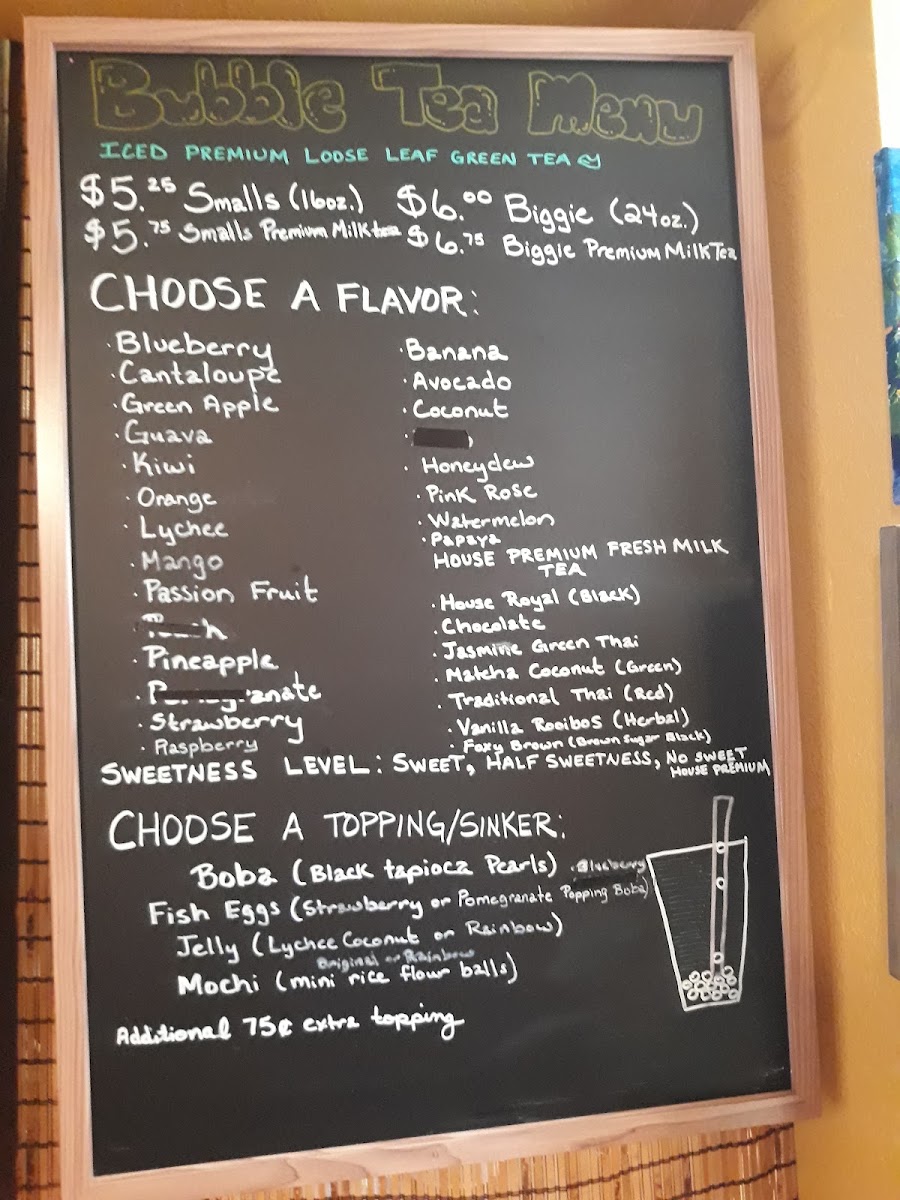 Bubble Tea Menu
ICED PREMIUM LOOSE LEAF GREEN TEA
$5.25 Smalls (16oz.) $6.00 Biggie (24oz.)
$5.75 Smalls Premium Milk tea $6.75 Biggie Premium Milk Tea
CHOOSE A FLAVOR:
· Blueberry
· Cantaloupe
· Green Apple
· Guava
· Kiwi
· Orange
· Lychee
· Mango
· Passion Fruit
· Pineapple
· Strawberry
· Raspberry
· Banana
· Avocado
· Coconut
· Honeydew
· Pink Rose
· Watermelon
· Papaya
HOUSE PREMIUM FRESH MILK
TEA
· House Royal (Black)
· Chocolate
· Jasmine Green Thai
· Matcha Coconut (Green)
· Traditional Thai (Red)
· Vanilla Rooibos (Herbal)
· Foxy Brown (Brown Sugar Black)
SWEETNESS LEVEL: SWEET, HALF SWEETNESS, NO SWEET
HOUSE PREMIUM
CHOOSE A TOPPING/SINKER:
Boba (Black tapioca Pearls) · Blueberry
Fish Eggs (Strawberry or Pomegranate Popping Boba)
Jelly (Lychee Coconut or Rainbow)
Original or Rainbow
Mochi (mini rice flour balls)
Additional 75¢ extra topping